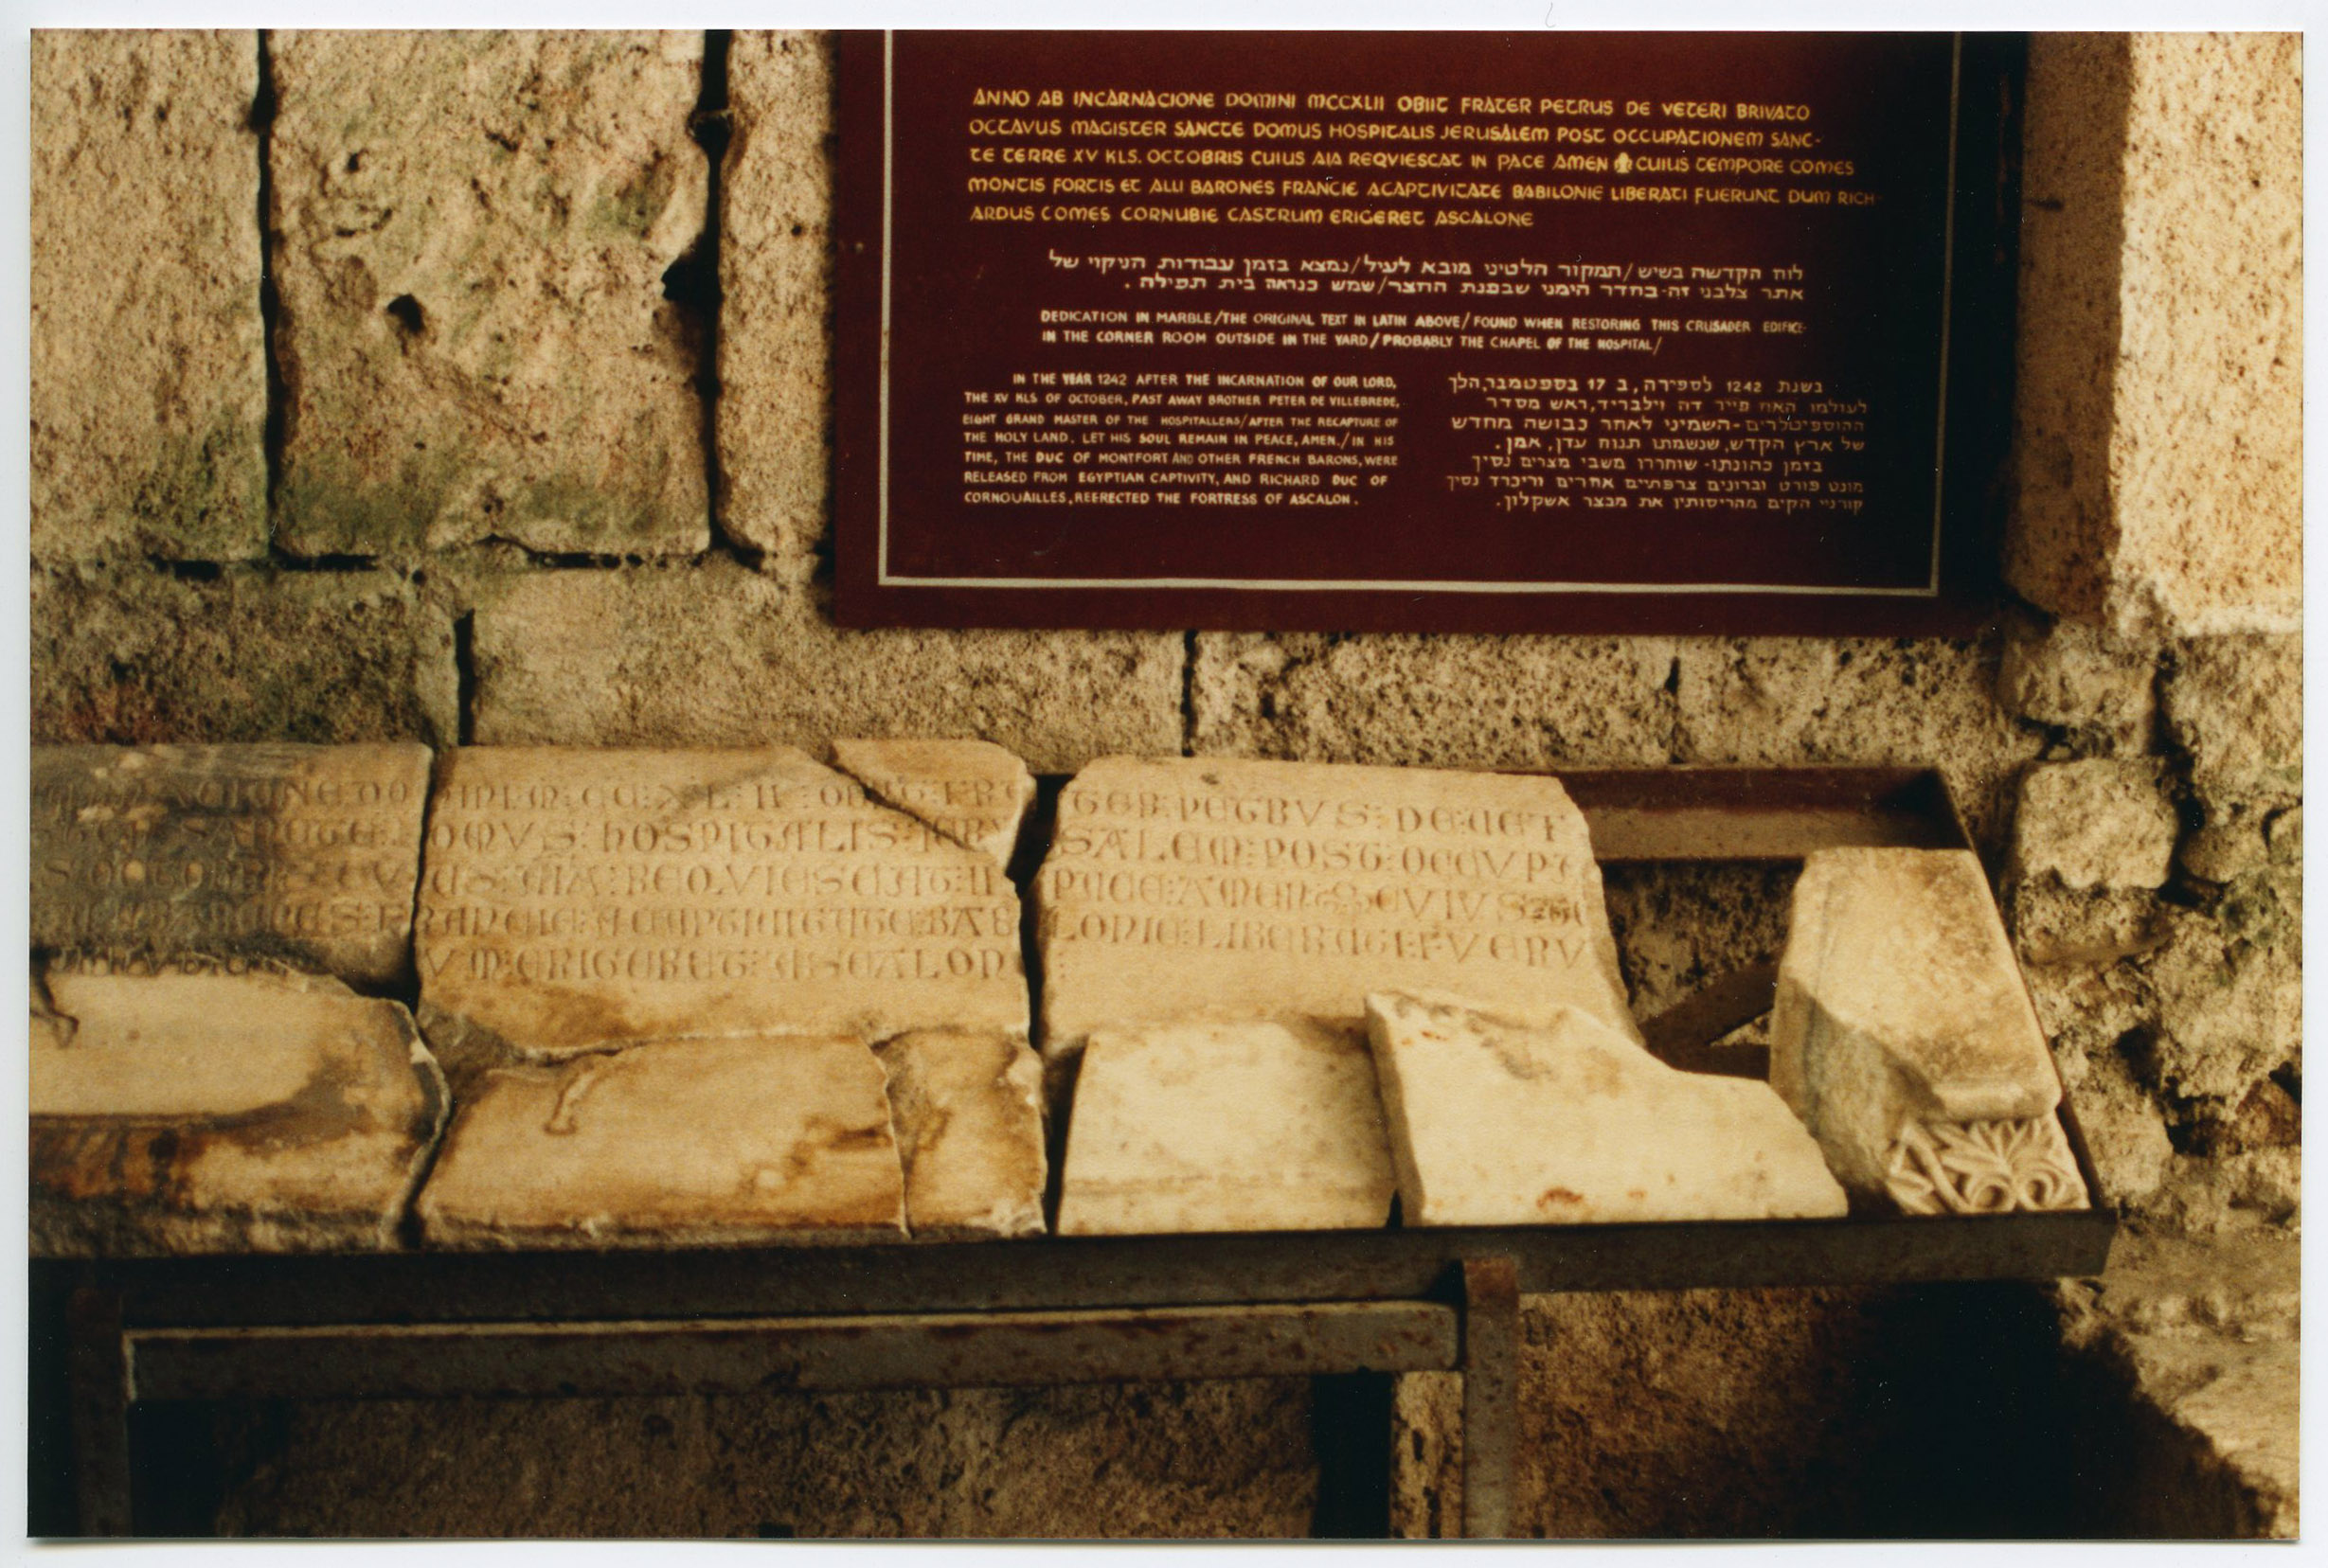 ANNO AB INCARNACIONE DOMINI MCCXLII OBIIT FRATER PETRUS DE VETERI BRIVATO
OCTAVUS MAGISTER SANCTE DOMUS HOSPITALIS JERUSALEM POST OCCUPATIONEM SANC-
TE TERRE XV KLS. OCTOBRIS CUIUS AIA REQVIESCAT IN PACE AMEN CUIUS TEMPORE COMES
MONTIS FORTIS ET ALLI BARONES FRANCIE ACAPTIVITATE BABILONIE LIBERATI FUERUNT DUM RICH-
ARDUS COMES CORNUBIE CASTRUM ERIGERET ASCALONE
לוח הקדשה בשיש/המקור הלטיני מובא לעיל/נמצא בזמן עבודות הניקוי של
אתר צלבני זה-בחדר הימני שבפנת החצר/שמש כנראה בית תפילה.
DEDICATION IN MARBLE/THE ORIGINAL TEXT IN LATIN ABOVE/FOUND WHEN RESTORING THIS CRUSADER EDIFICE-
IN THE CORNER ROOM OUTSIDE IN THE YARD/PROBABLY THE CHAPEL OF THE HOSPITAL/
IN THE YEAR 1242 AFTER THE INCARNATION OF OUR LORD,
THE XV KLS OF OCTOBER, PAST AWAY BROTHER PETER DE VILLEBREDE,
EIGHT GRAND MASTER OF THE HOSPITALLERS/AFTER THE RECAPTURE OF
THE HOLY LAND. LET HIS SOUL REMAIN IN PEACE, AMEN./IN HIS
TIME, THE DUC OF MONTFORT AND OTHER FRENCH BARONS, WERE
RELEASED FROM EGYPTIAN CAPTIVITY, AND RICHARD DUC OF
CORNOUAILLES, REERECTED THE FORTRESS OF ASCALON.
בשנת 1242 לספירה, ב 17 בספטמבר, הלך
לעולמו האח פייר דה וילבריד, ראש מסדר
ההוספיטלרים-השמיני לאחר כבושה מחדש
של ארץ הקדש, שנשמתו תנוח עדן, אמן.
בזמן כהונתו-שוחררו משבי מצרים נסיך
מונט פורט וברונים צרפתיים אחרים וריכרד נסיך
קורניי הקים מהריסותיו את מבצר אשקלון.
DO MINI M:CC:XL:II:OBIIT:FRA TER:PETRVS:DE:VET
SANCTE:DOMVS:HOSPITALIS:IERV SALEM:POST:OCCVPA
OCTOBRIS:CVIVS:AIA:REQVIESCAT:IN PACE:AMEN CVIVS
BARONES:FRANCIE:ACAPTIVITATE:BABI LONIE:LIBERATI:FVERV
VM:ERIGERET:ASCALON